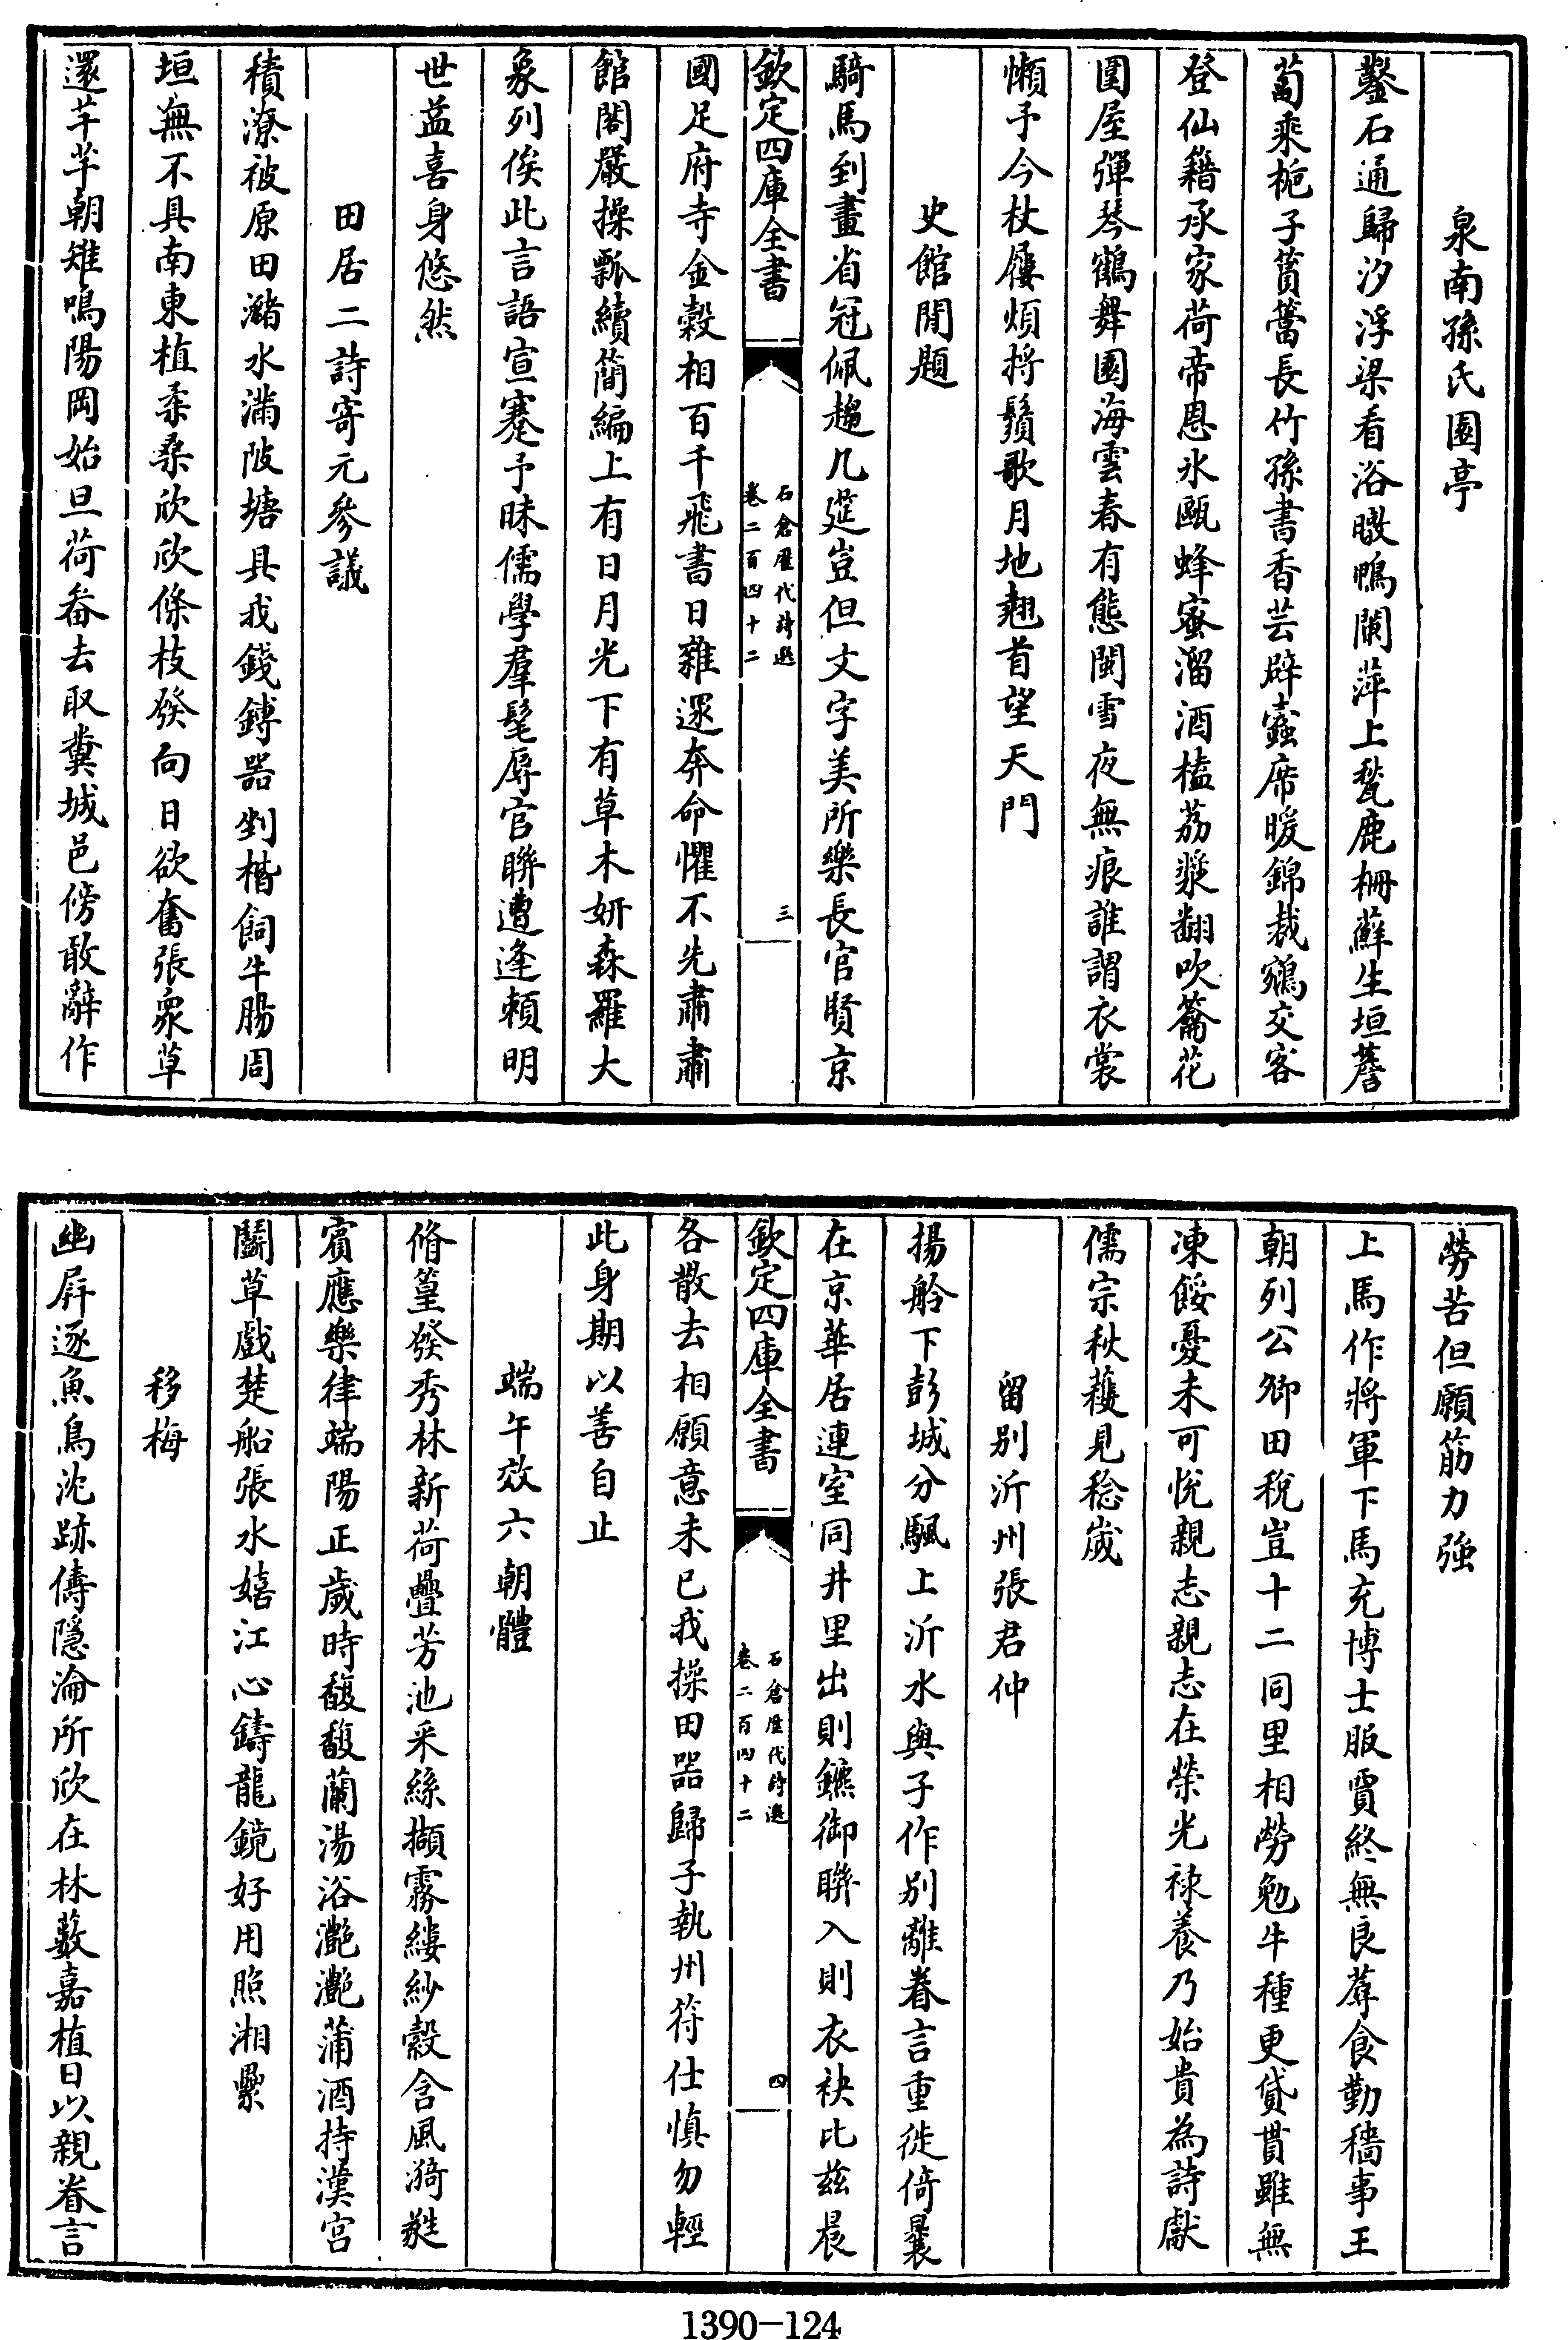 泉南孫氏園亭
鑿石通歸汐浮梁看浴暾鴨闌萍上甃鹿柵蘚生垣薝
蔔乘梔子篔簹長竹孫書香芸辟蠹席暖錦裁鵷交客
登仙籍承家荷帝恩氷甌蜂蜜溜酒榼荔漿翻吹籥花
圍屋彈琴鶴舞園海雲春有態閩雪夜無痕誰謂衣裳
懶予今杖屨煩捋鬚歌月地翹首望天門
史館閒題
騎馬到畫省冠佩趨几筵豈但文字美所樂長官賢京
欽定四庫全書
石倉歷代詩選
卷二百四十二
三
國足府寺金榖相百千飛書日雜還奔命懼不先肅肅
館閣嚴操瓢續簡編上有日月光下有草木妍森羅大
象列俟此言語宣蹇予昧儒學羣髦辱官聯遭逢頼明
世益喜身悠然
田居二詩寄元參議
積潦被原田瀦水滿陂塘具我錢鎛器剉楷飼牛腸周
垣無不具南東植柔桑欣欣條枝發向日欲奮張衆草
還芊芊朝雉鳴陽岡始旦荷畚去取糞城邑傍敢辭作
勞苦但願筋力強
上馬作將軍下馬充博士服賈終無良蓐食勤穡事王
朝列公卿田稅豈十二同里相勞勉牛種更貸貰雖無
凍餒憂未可悅親志親志在榮光祿養乃始貴為詩獻
儒宗秋穫見稔歲
留別沂州張君仲
揚舲下彭城分颿上沂水與子作別離眷言重徙倚曩
在京華居連室同井里出則鑣御聯入則衣袂比兹晨
欽定四庫全書
石倉歷代詩選
卷二百四十二
四
各散去相願意未已我操田器歸子執州符仕慎勿輕
此身期以善自止
端午效六朝體
脩篁發秀林新荷疊芳池采絲擷霧縷紗縠含風漪蕤
賓應樂律端陽正歲時馥馥蘭湯浴灔灔蒲酒持漢宫
鬬草戲楚船張水嬉江心鑄龍鏡好用照湘纍
移梅
幽屏逐魚鳥沈跡儔隱淪所欣在林藪嘉植日以親眷言
1390-124